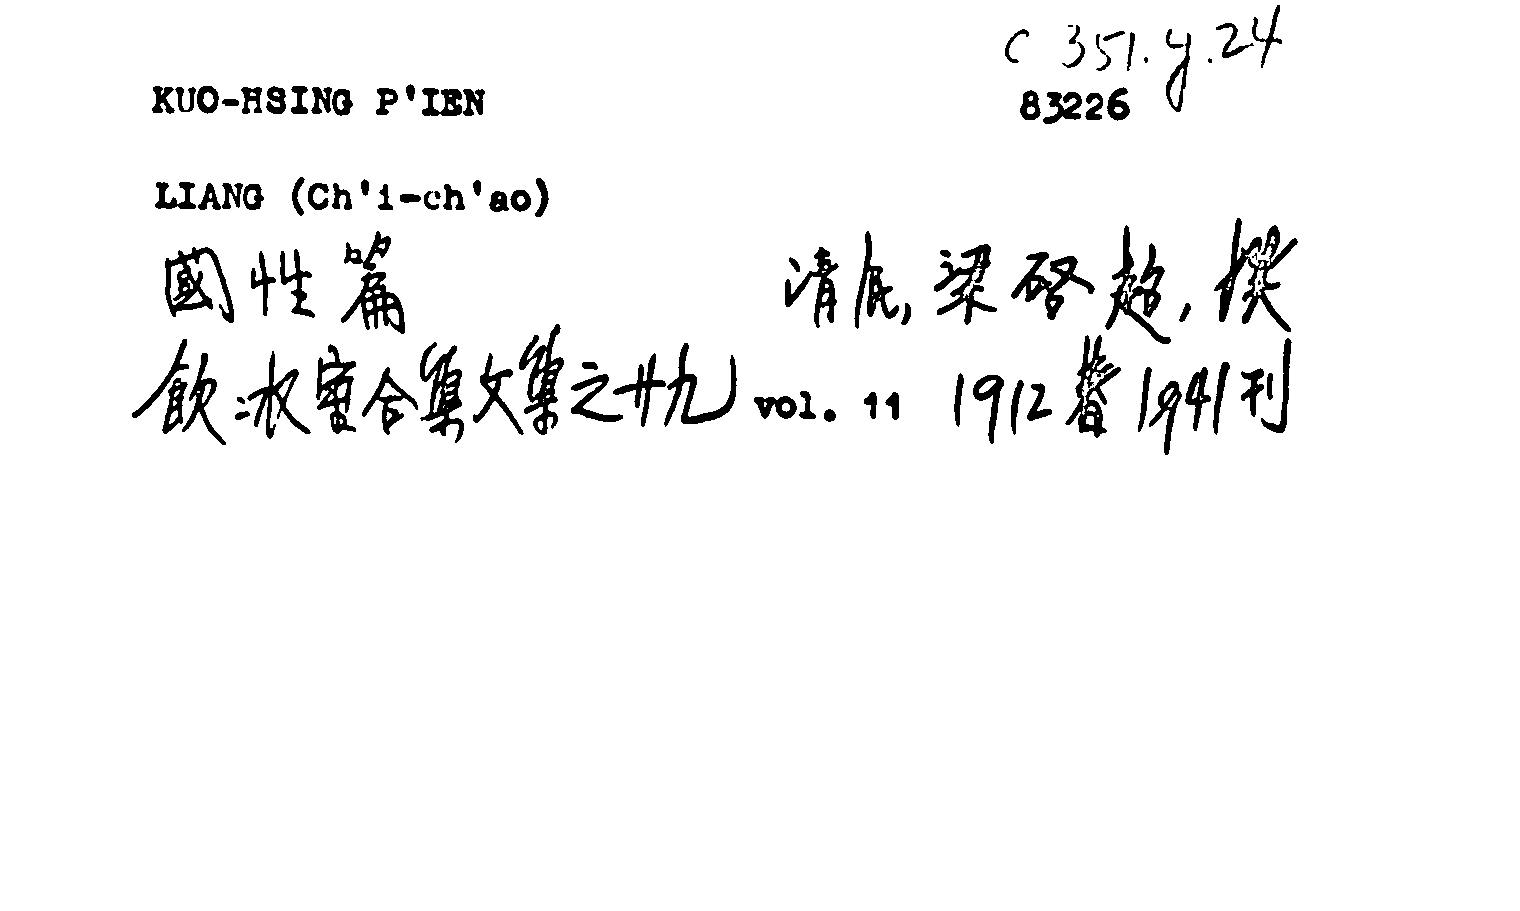 C 351.y.24
KUO-HSING P'IEN 83226
LIANG (Ch'i-ch'ao)
國性篇 清 梁啓超, 撰
飲冰室合集文集之廿九 vol. 11 1912 1941刊